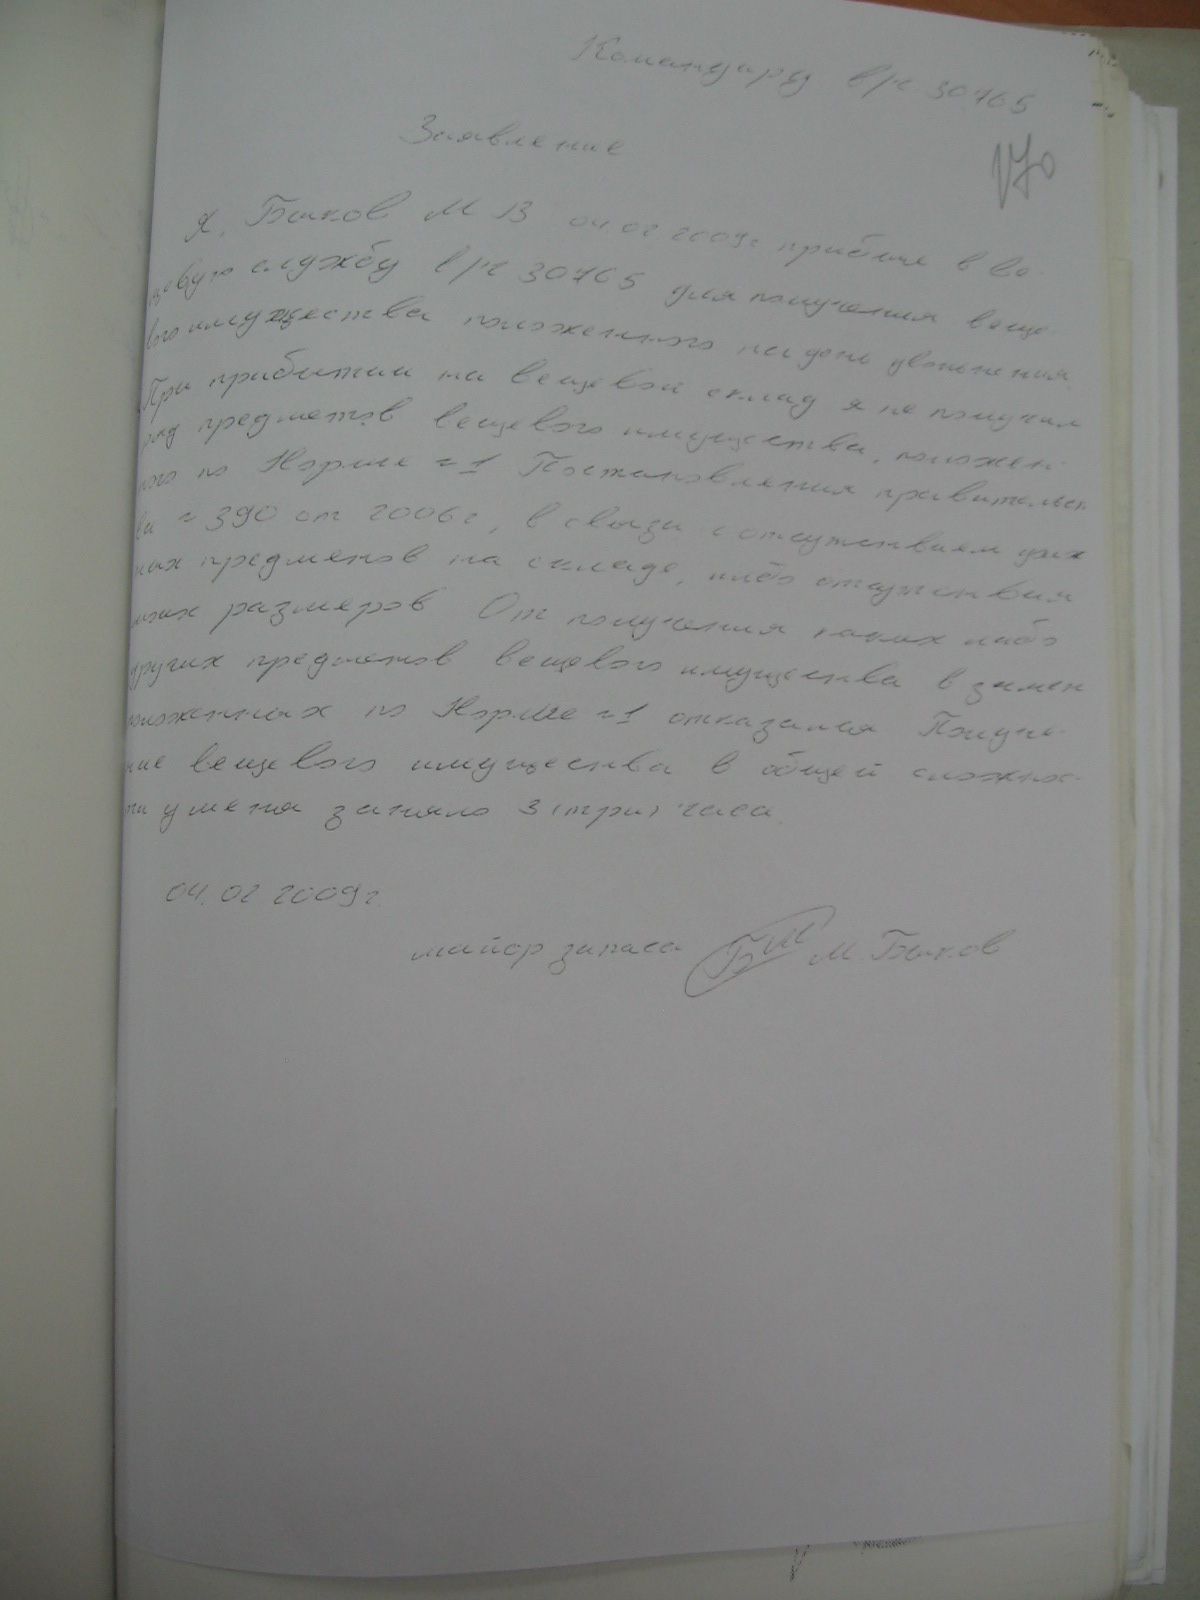 Командиру в/ч 30765
Заявление
170
Я, Быков М В 04 02 2009г прибыл в ве-
щевую службу в/ч 30765 для получения веще-
вого имущества положенного на день увольнения.
При прибытии на вещевой склад я не получил
ряд предметов вещевого имущества, положен-
ного по Норме №1 Постановления правительст
ва №390 от 2006г, в связи с отсутствием
ных предметов на складе, либо отсутствия
моих размеров От получения каких либо
других предметов вещевого имущества в замен
положенных по Норме №1 отказался Получе-
ние вещевого имущества в общей сложнос-
ти у меня заняло 3 (три) часа.
04.02 2009г.
майор запаса М. Быков